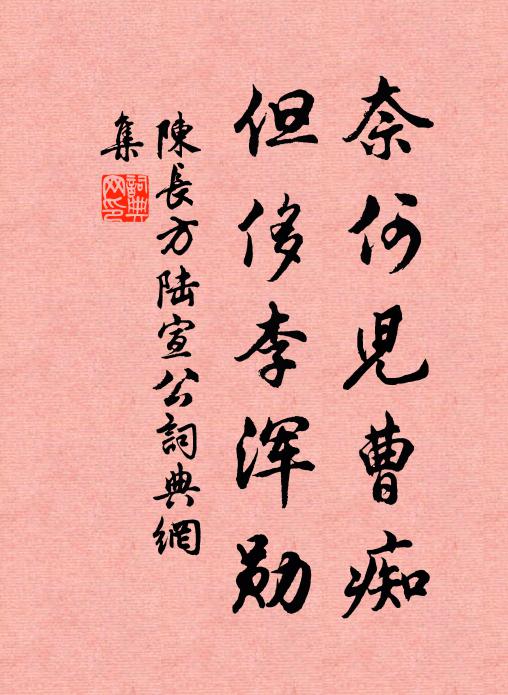 奈何兒曹痴
但侈李浑勋
陳長方陸宣公詞典網
集
詞典
网印